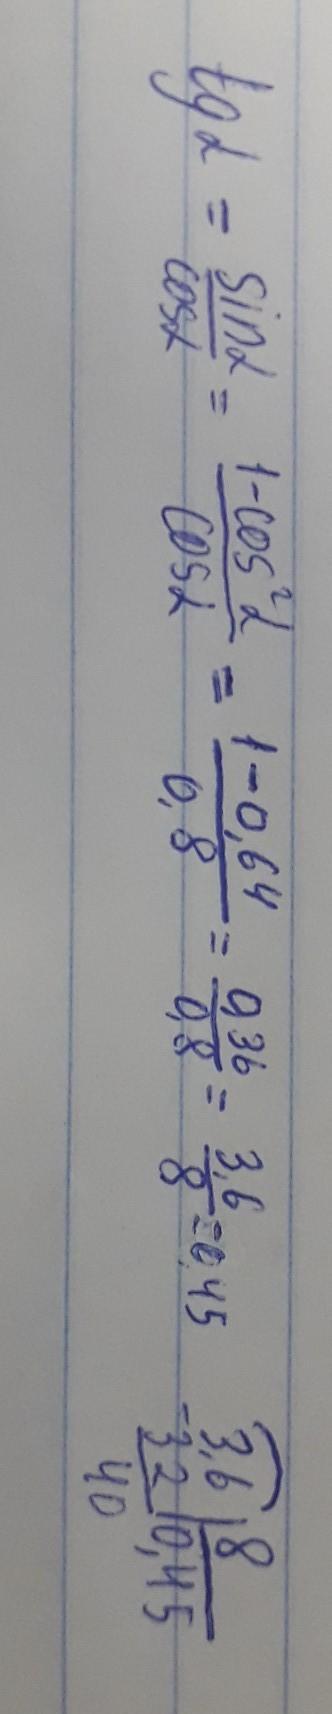 tg α = sin α / cos α = 1 - cos² α / cos α = 1 - 0,64 / 0,8 = 0,36 / 0,8 = 3,6 / 8 = 0,45
3,6 | 8
-32 | 0,45
40